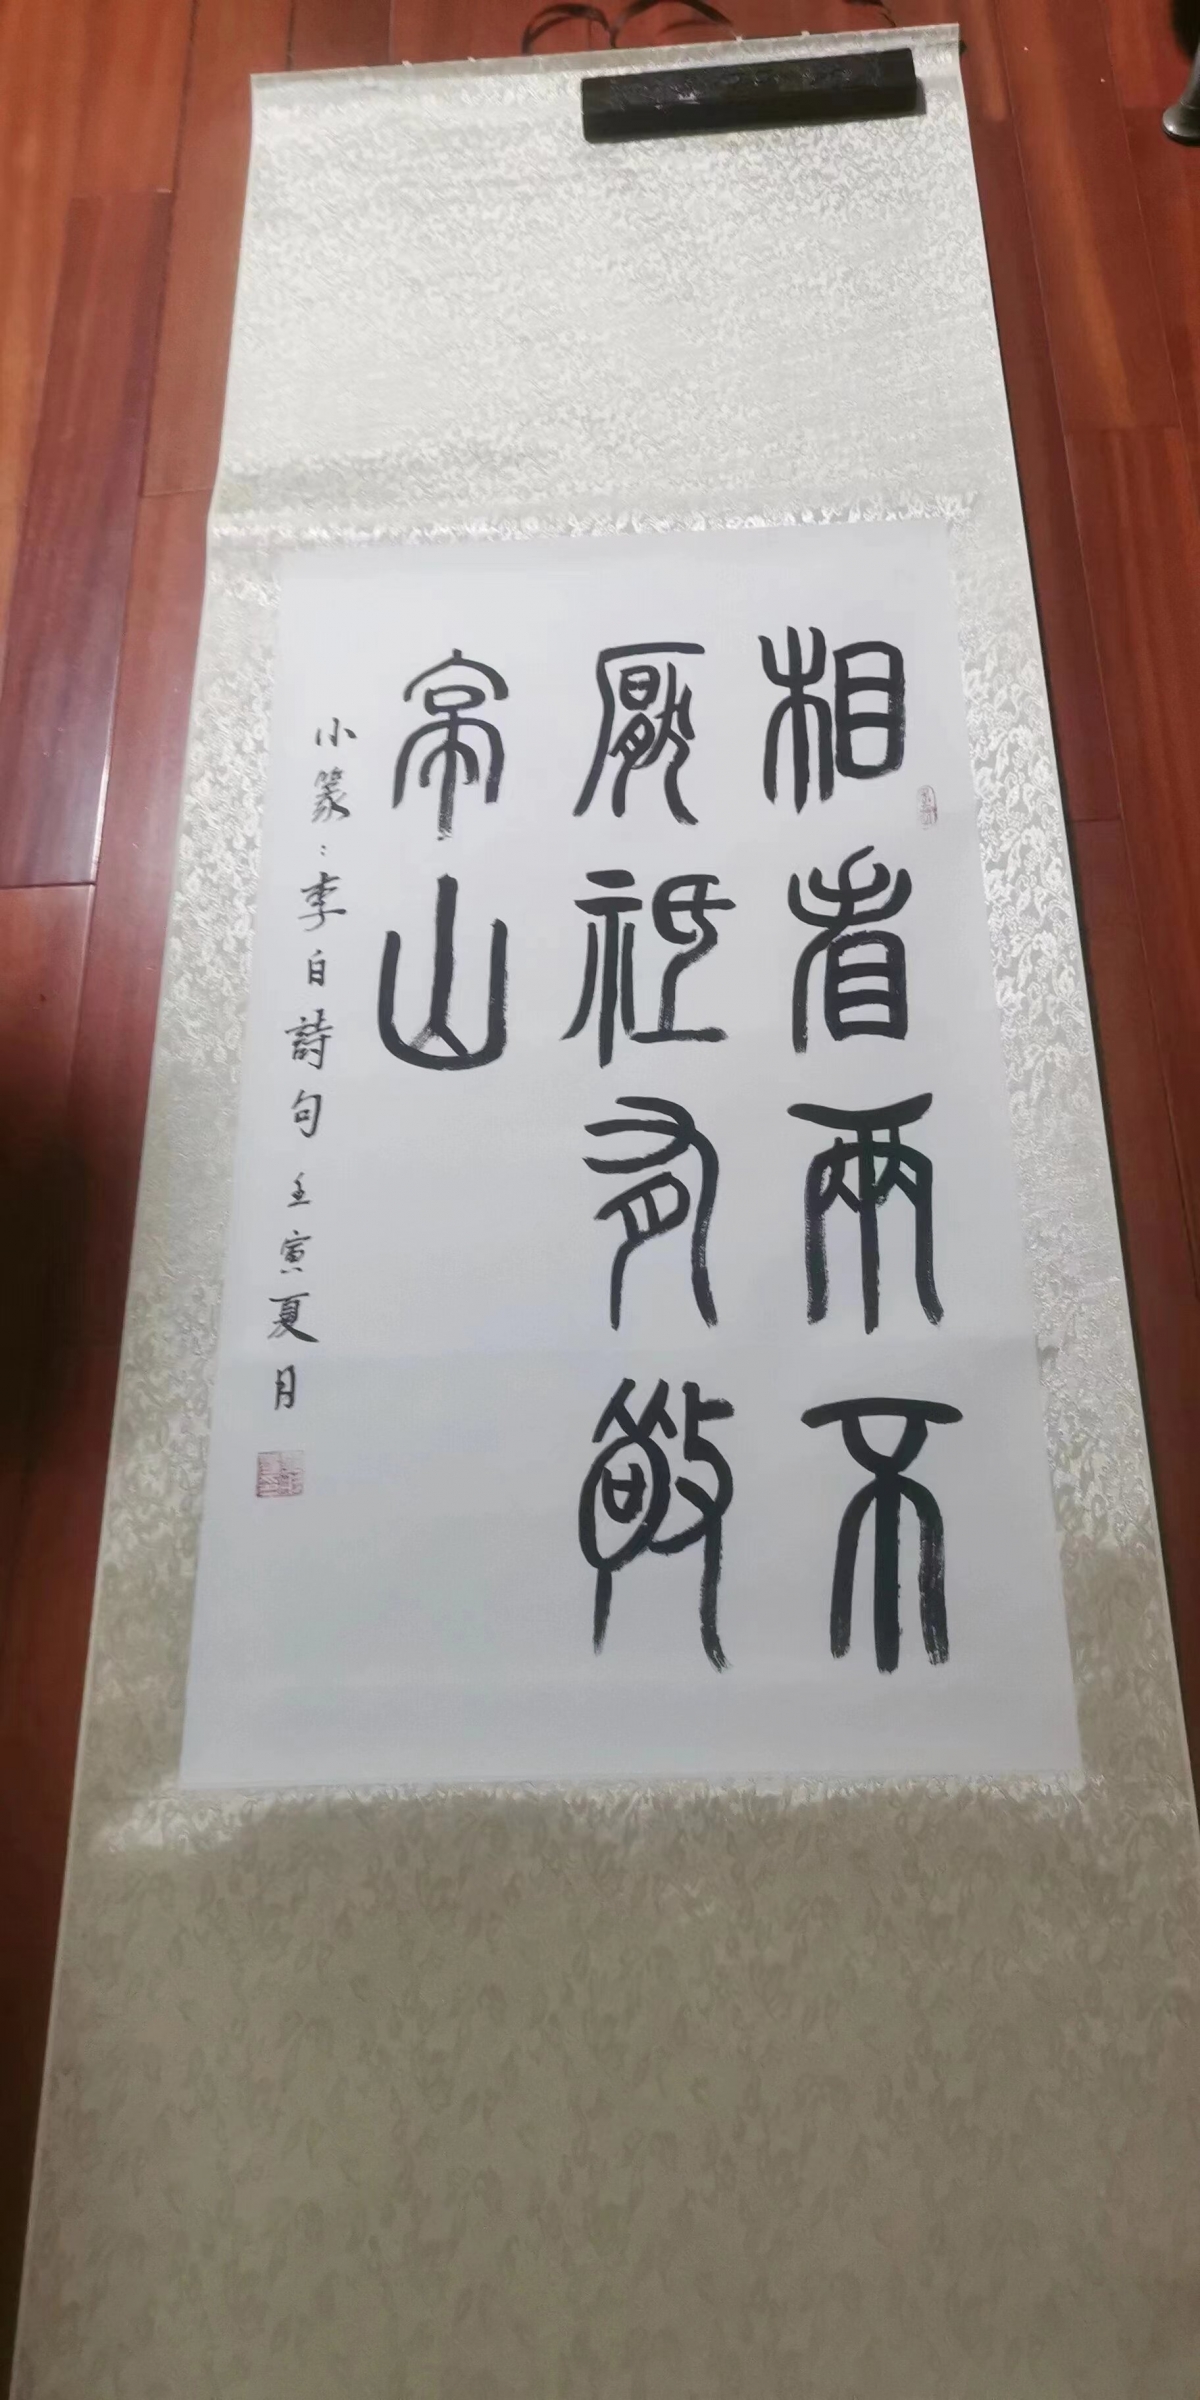 相看两不
厭祗有敬
亭山
小篆：李白詩句 壬寅夏月